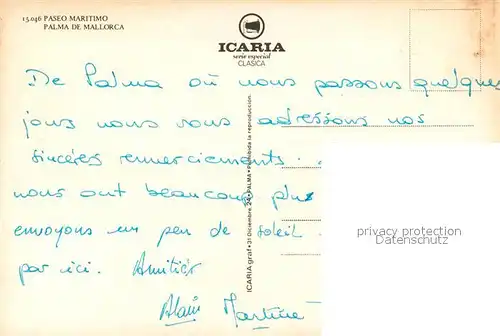 13.046 PASEO MARITIMO
PALMA DE MALLORCA
ICARIA
serie especial
CLASICA
De Palma où nous passons quelques
jours nous vous adressons nos
sincères remerciements.
nous ont beaucoup plus
envoyons un peu de soleil
par ici. Amitiés
Alain Martine
ICARIA graf • 31 Diciembre 24 • PALMA • Prohibida la reproducción
privacy protection
Datenschutz